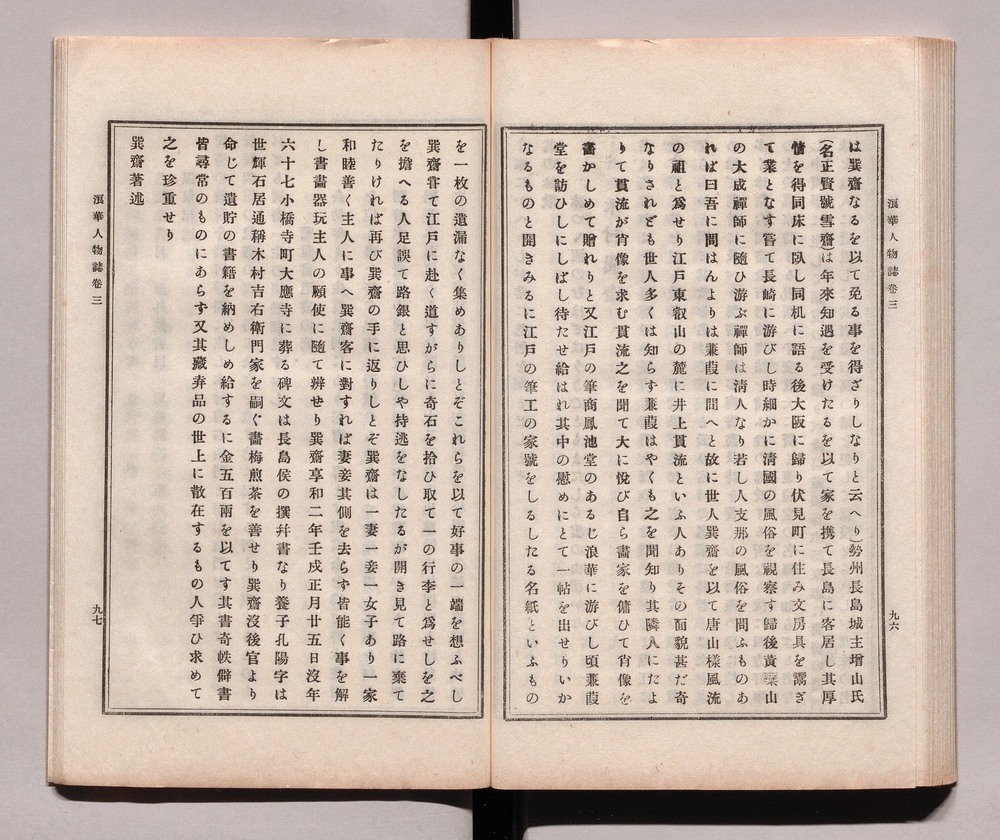 浪華人物誌卷三
九六
は巽齋なるを以て免る事を得ざりしなりと云へり)勢州長島城主増山氏
(名正賢號雪齋)は年來知遇を受けたるを以て家を携て長島に客居し其厚
情を得同床に臥し同机に語る後大阪に歸り伏見町に住み文房具を鬻ぎ
て業となす嘗て長崎に游びし時細かに清國の風俗を視察す歸後黄檗山
の大成禪師に隨ひ游ぶ禪師は清人なり若し人支那の風俗を問ふものあ
れば曰吾に問はんよりは蒹葭に問へと故に世人巽齋を以て唐山樣風流
の祖と爲せり江戸東叡山の麓に井上貫流といふ人ありその面貌甚だ奇
なりされども世人多くは知らず蒹葭はやくも之を聞知り其隣人にたよ
りて貫流が肖像を求む貫流之を聞て大に悦び自ら畫家を傭ひて肖像を
畫かしめて贈れりと又江戸の筆商鳳池堂のあるじ浪華に游びし頃蒹葭
堂を訪ひしにしばし待たせ給はれ其中の慰めにとて一帖を出せりいか
なるものと開きみるに江戸の筆工の家號をしるしたる名紙といふもの
を一枚の遺漏なく集めありしとぞこれらを以て好事の一端を想ふべし
巽齋甞て江戸に赴く道すがらに奇石を拾ひ取て一の行李と爲せしを之
を擔へる人足誤て路銀と思ひしや持逃をなしたるが開き見て路に棄て
たりければ再び巽齋の手に返りしとぞ巽齋は一妻一妾一女子あり一家
和睦善く主人に事へ巽齋客に對すれば妻妾其側を去らず皆能く事を解
し書畫器玩主人の願使に隨て辨せり巽齋享和二年壬戌正月廿五日沒年
六十七小橋寺町大應寺に葬る碑文は長島侯の撰幷書なり養子孔陽字は
世輝石居通稱木村吉右衛門家を嗣ぐ畫梅煎茶を善せり巽齋沒後官より
命じて遺貯の書籍を納めしめ給するに金五百兩を以てす其書奇帙僻書
皆尋常のものにあらず又其藏弆品の世上に散在するもの人爭ひ求めて
之を珍重せり
巽齋著述
浪華人物誌卷三
九七